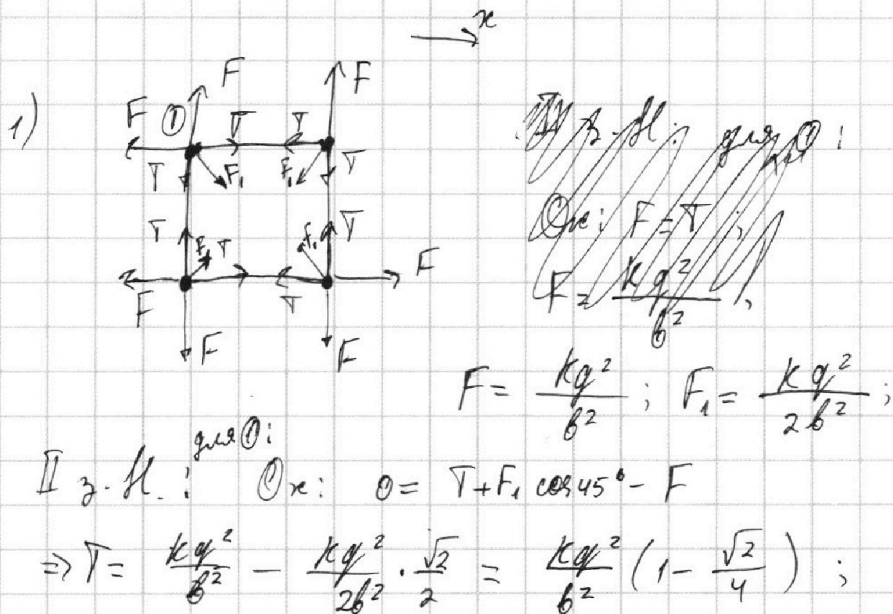 x
1)
F F
F ① T T
T F₁ F₁ T
T F₁ T F₁ T
F T F
F F
II з. Н. для ① :
Ox: F = T ;
F = kq²/b² ;
F = kq²/b² ; F₁ = kq²/2b² ;
для ①:
II з. Н. : Ox: 0 = T + F₁ cos 45° - F
=> T = kq²/b² - kq²/2b² · √2/2 = kq²/b² (1 - √2/4) ;